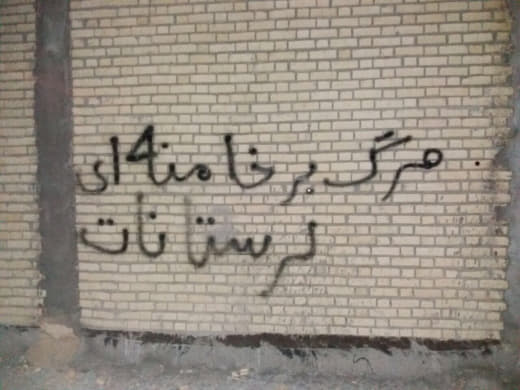 مرگ بر خامنه ای
لرستانات